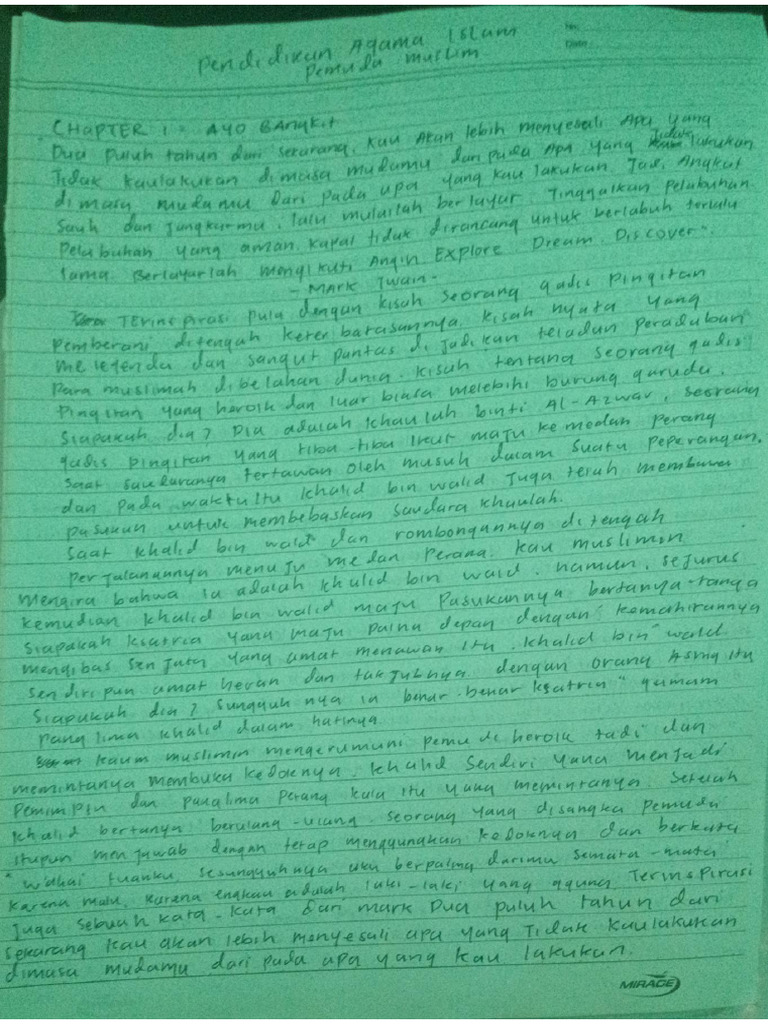 Pendidikan Agama Islam
Pemuda muslim
No.
Date
CHAPTER 1 : AYO BANGKIT
Dua puluh tahun dari sekarang, kau akan lebih menyesali Apa yang
Tidak kaulakukan dimasa mudamu daripada Apa yang Tidak lakukan
dimasa mudamu dari pada apa yang kau lakukan Jadi, Angkat
Sauh dan Jangkarmu, lalu mulailah berlayar. Tinggalkan Pelabuhan-
Pelabuhan yang aman. Kapal tidak dirancang untuk berlabuh terlalu
lama. Berlayarlah mengikuti Angin Explore. Dream. Discover".
- Mark Twain -
Terinspirasi pula dengan kisah seorang gadis Pingitan
Pemberani ditengah keterbatasannya. kisah nyata yang
melegenda dan sangat pantas di jadikan teladan peradaban
Para muslimah dibelahan dunia. kisah tentang seorang gadis
Pingitan yang heroik dan luar biasa melebihi burung garuda.
Siapakah dia? Dia adalah khaulah binti Al-Azwar, seorang
gadis pingitan yang tiba-tiba ikut maju ke medan perang
Saat saudaranya tertawan oleh musuh dalam suatu peperangan.
dan pada waktu itu khalid bin walid juga telah membawa
pasukan untuk membebaskan saudara khaulah.
Saat khalid bin walid dan rombongannya ditengah
perjalanannya menuju medan Perang. kau muslimin
mengira bahwa ia adalah khalid bin walid. namun, sejurus
kemudian khalid bin walid maju Pasukannya bertanya-tanya
Siapakah ksatria yang maju paling depan dengan kemahirannya
mengibas senjata yang amat menawan itu. khalid bin walid
sendiri pun amat heran dan takjubnya dengan orang Asing itu
Siapakah dia? Sungguh nya ia benar-benar ksatria" gumam
Panglima khalid dalam hatinya
kaum muslimin mengerumuni pemuda heroik tadi dan
memintanya membuka kedoknya. khalid Sendiri yang menjadi
Pemimpin dan panglima Perang kala itu yang memintanya. Setelah
khalid bertanya berulang-ulang. seorang yang disangka pemuda
itupun menjawab dengan tetap menggunakan kedoknya dan berkata
"Wahai tuanku, sesungguhnya aku berpaling darimu semata-mata
karena malu, karena engkau adalah laki-laki yang agung Terinspirasi
Juga sebuah kata-kata dari mark Dua puluh tahun dari
Sekarang kau akan lebih menyesali apa yang Tidak kaulakukan
dimasa mudamu dari pada apa yang kau lakukan.
MIRAGE